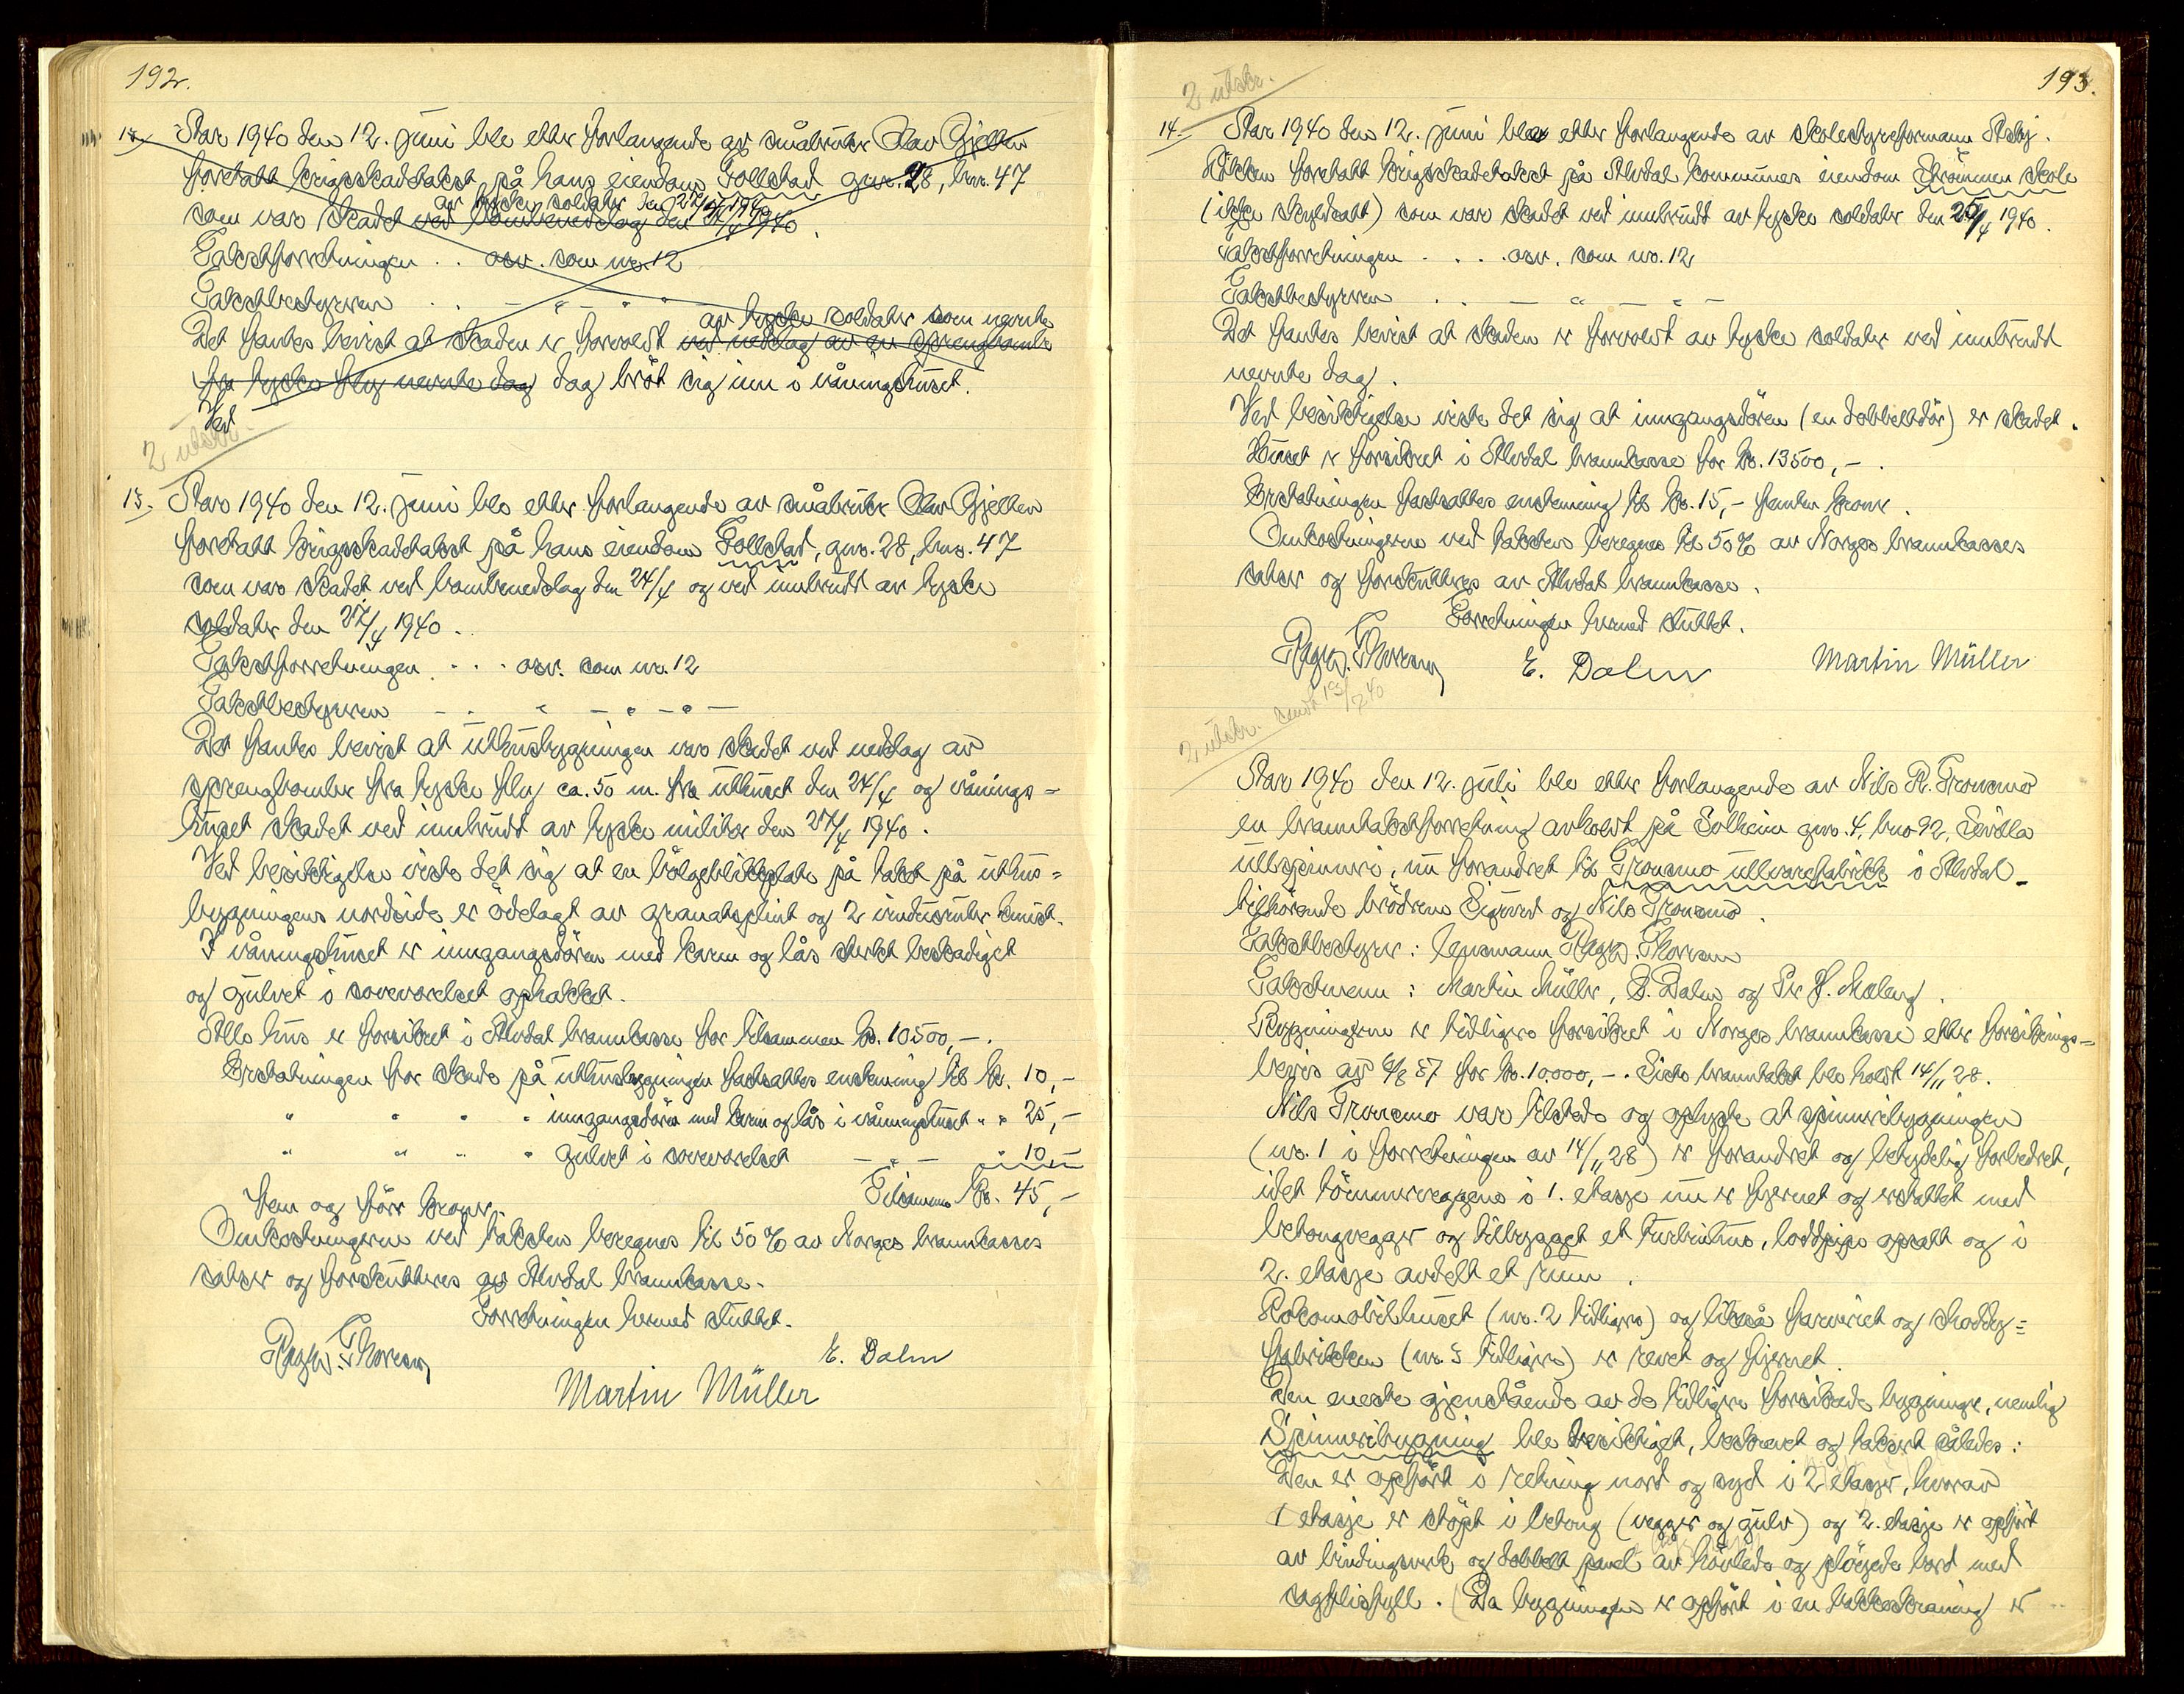 192.
13. År 1940 den 12. juni ble etter forlangende av småbruker Olav Gjelten
foretatt krigsskadetakst på hans eiendom Tollstad gnr. 28, bnr. 47
av tyske soldater den 27/4 1940
som var skadet ved bombenedslag den 24/4 1940.
Takstforretningen . . osv. som nr. 12
Takstbestyreren . . — " — " "
av tyske soldater som nevnte
Det fantes bevist at skaden er forvoldt ved nedslag av en sprengbombe
fra tyske fly nevnte dag dag bröt sig inn i våningshuset.
Ved
2 utskr.
13. År 1940 den 12. juni ble etter forlangende av småbruker Olav Gjelten
foretatt krigsskadetakst på hans eiendom Tollstad, gnr. 28, bnr. 47
som var skadet ved bombenedslag den 24/4 og ved innbrudd av tyske
soldater den 27/4 1940.
Takstforretningen . . . osv. som nr. 12
Takstbestyreren — " " — " — " —
Det fantes bevist at uthusbygningen var skadet ved nedslag av
sprengbomber fra tyske fly ca. 50 m. fra uthuset den 24/4 og vånings-
huset skadet ved innbrudd av tyske militær den 27/4 1940.
Ved besiktigelse viste det sig at en bölgeblikkplate på taket på uthus-
bygningens nordside er ödelagt av granatsplint og 2 vindusruter knust.
I våningshuset er inngangsdören med karm og lås sterkt beskadiget
og gulvet i soveværelset ophakket.
Alle hus er forsikret i Alvdal brannkasse for tilsammen kr. 10500,-.
Erstatningen for skade på uthusbygningen fastsattes enstemmig til kr. 10,-
" " " " inngangsdören med karm og lås i våningshuset " " 25,-
" " " " gulvet i soveværelset — " — " 10,-
Tilsammen kr. 45,-
fem og förr kroner.
Omkostningerne ved taksten beregnes til 50% av Norges brannkasses
satser og forskutteres av Alvdal brannkasse.
Forretningen hermed sluttet.
Ragv. Thoresen
E. Dalen
Martin Müller
193.
2 utskr.
14. År 1940 den 12. juni ble etter forlangende av skolestyreformann Asbj.
foretatt krigsskadetakst på Alvdal kommunes eiendom Strömmen skole
(ikke skyldsatt) som var skadet ved innbrudd av tyske soldater den 25/4 1940.
Takstforretningen . . . . osv. som nr. 12
Takstbestyreren . . — " — " —
Det fantes bevist at skaden er forvoldt av tyske soldater ved innbrudd
nevnte dag.
Ved besiktigelse viste det sig at inngangsdören (en dobbeltdör) er skadet.
Huset er forsikret i Alvdal brannkasse for kr. 13500,-.
Erstatningen fastsattes enstemmig til kr. 15,- femten kroner.
Omkostningerne ved taksten beregnes til 50% av Norges brannkasses
satser og forskutteres av Alvdal brannkasse.
Forretningen hermed sluttet.
Ragv. Thoresen E. Dalen Martin Müller
2 utskr. sendt 13/7 40
År 1940 den 12. juli ble etter forlangende av Nils R. Tronsmo
en branntakstforretning avholdt på Solheim gnr. 4, bnr 92,
ullspinneri, nu forandret til Tronsmo ullvarefabrikk i Alvdal
tilhörende brödrene Sigurd og Nils Tronsmo.
Takstbestyrer: lensmann Ragv. Thoresen
Takstmenn: Martin Müller, E. Dalen og Per J. Mæleng.
Bygningerne er tidligere forsikret i Norges brannkasse etter forsikrings-
bevis av 6/8 37 for kr. 10.000,-. Siste branntakst ble holdt 14/11 28.
Nils Tronsmo var tilstede og oplyste at spinneribygningen
(nr. 1 i forretningen av 14/11 28) er forandret og betydelig forbedret,
idet tömmerveggene i 1. etasje nu er fjernet og erstattet med
betongvegger og tilbygget et turbinhus, loddpipe opsatt og i
2. etasje avdelt et rum.
Lokomobilhuset (nr. 2 tidligere) og likeså farveriet og shoddy-
fabrikken (nr. 3 tidligere) er revet og fjernet.
Den eneste gjenstående av de tidligere forsikrede bygninger, nemlig
Spinneribygning ble besiktiget, beskrevet og taksert således:
Den er opfört i retning nord og syd i 2 etasjer, hvorav
1 etasje er stöpt i betong (vegger og gulv) og 2. etasje er opfört
av bindingsverk og dobbelt panel av hövlede og plöyede bord med
sagflisfyll. (Da bygningen er opfört i en bakkeskråning er